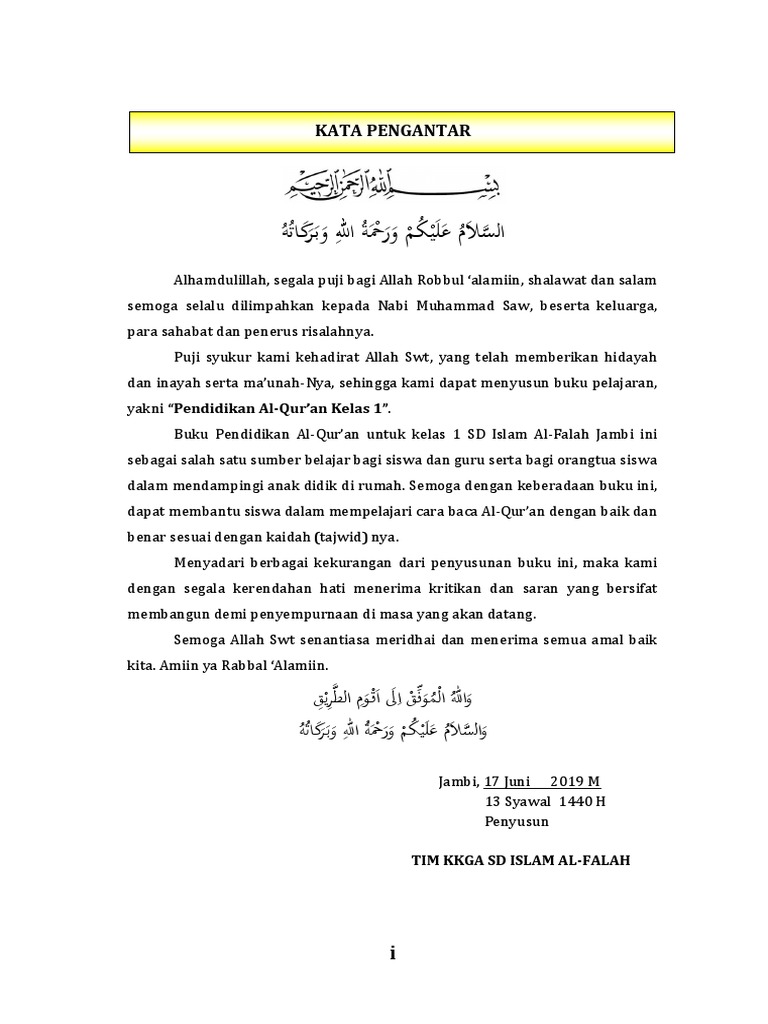 KATA PENGANTAR
بِسْمِ اللهِ الرَّحْمٰنِ الرَّحِيْمِ
السَّلاَمُ عَلَيْكُمْ وَرَحْمَةُ اللهِ وَبَرَكَاتُهُ
Alhamdulillah, segala puji bagi Allah Robbul ‘alamiin, shalawat dan salam
semoga selalu dilimpahkan kepada Nabi Muhammad Saw, beserta keluarga,
para sahabat dan penerus risalahnya.
Puji syukur kami kehadirat Allah Swt, yang telah memberikan hidayah
dan inayah serta ma’unah-Nya, sehingga kami dapat menyusun buku pelajaran,
yakni “Pendidikan Al-Qur’an Kelas 1”.
Buku Pendidikan Al-Qur’an untuk kelas 1 SD Islam Al-Falah Jambi ini
sebagai salah satu sumber belajar bagi siswa dan guru serta bagi orangtua siswa
dalam mendampingi anak didik di rumah. Semoga dengan keberadaan buku ini,
dapat membantu siswa dalam mempelajari cara baca Al-Qur’an dengan baik dan
benar sesuai dengan kaidah (tajwid) nya.
Menyadari berbagai kekurangan dari penyusunan buku ini, maka kami
dengan segala kerendahan hati menerima kritikan dan saran yang bersifat
membangun demi penyempurnaan di masa yang akan datang.
Semoga Allah Swt senantiasa meridhai dan menerima semua amal baik
kita. Amiin ya Rabbal ‘Alamiin.
وَاللهُ الْمُوَفِّقْ اِلَى اَقْوَمِ الطَّرِيْقِ
وَالسَّلاَمُ عَلَيْكُمْ وَرَحْمَةُ اللهِ وَبَرَكَاتُهُ
Jambi, 17 Juni 2019 M
13 Syawal 1440 H
Penyusun
TIM KKGA SD ISLAM AL-FALAH
i